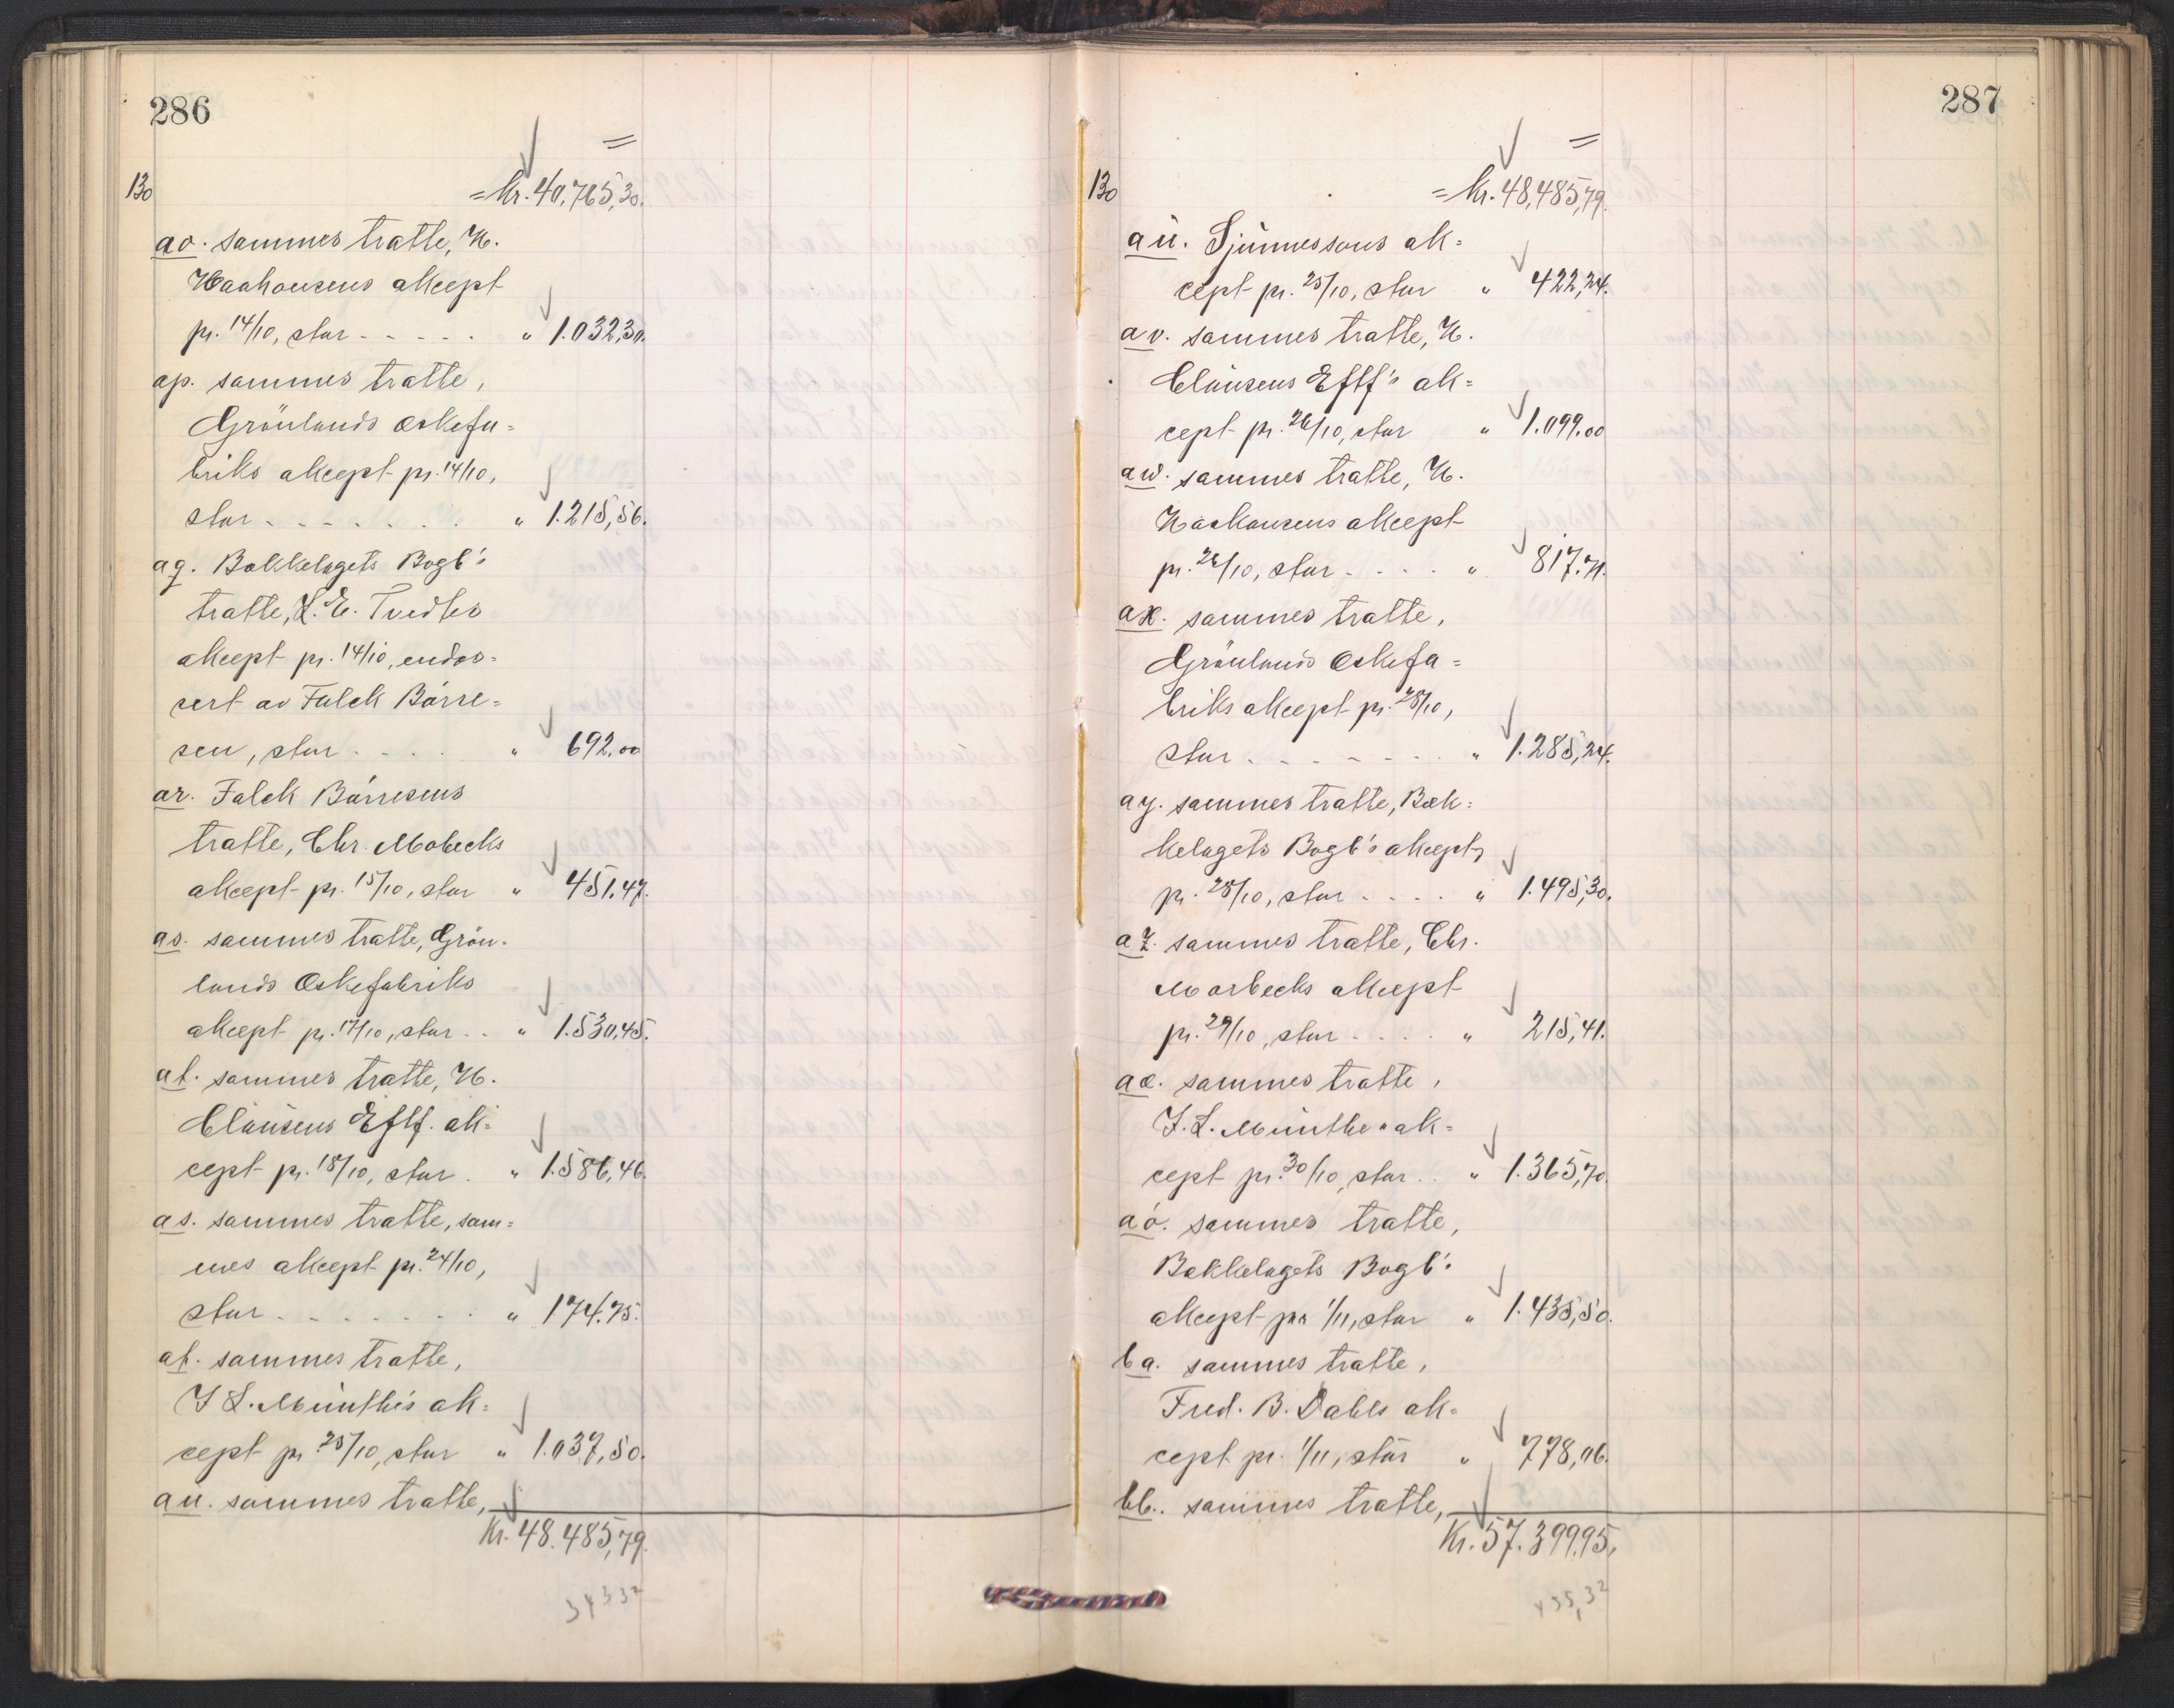 286
130
= Kr. 40,765,30.
ao. sammes tratte, H.
Haahousens akcept
pr. 14/10, stor - - - - - " 1.032,30.
ap. sammes tratte,
Grönlands æskefa=
briks akcept pr. 14/10,
stor - - - - - - - " 1.215,56.
aq. Bækkelagets Bogb's
tratte, L. E. Tvedtes
akcept pr. 14/10, endos=
sert av Falck Börre=
sen, stor - - - - " 692.00
ar. Falck Börresens
tratte, Chr. Mobecks
akcept pr. 15/10, stor " 451.47.
as. sammes tratte, Grön-
lands Æskefabriks
akcept pr. 17/10, stor - - " 1.530,45.
at. sammes tratte, H.
Clausens Eftf. ak=
cept pr. 18/10, stor - " 1.586,46.
as. sammes tratte, sam=
mes akcept pr. 24/10,
stor - - - - - - - " 174.75.
at. sammes tratte,
J L. Münthe's ak=
cept pr. 25/10, stor " 1.037,50.
au. sammes tratte,
Kr. 48.485,79.
287
130
= Kr. 48,485,79.
au. Sjünnessons ak=
cept pr. 25/10, stor " 422,24.
av. sammes tratte, H.
Clausens Eftf's ak=
cept pr. 26/10, stor " 1.099.00
aw. sammes tratte, H.
Haahousens akcept
pr. 26/10, stor - - - - " 817.71.
ax. sammes tratte,
Grönlands Æskefa=
briks akcept pr. 28/10,
stor - - - - - - - " 1.285,24.
ay. sammes tratte, Bæk=
kelagets Bogb's akcept,
pr. 28/10, stor - - - - " 1.495,30.
az. sammes tratte, Chr.
Morbecks akcept
pr. 29/10, stor - - - - " 215,41.
aæ. sammes tratte,
J. L. Münthes ak=
cept pr. 30/10, stor - - " 1.365,70.
aö. sammes tratte,
Bækkelagets Bogb's
akcept pr. 1/11, stor " 1.435,50.
ba. sammes tratte,
Fred. B. Dahls ak=
cept pr. 1/11, stor " 778,06.
bb. sammes tratte,
Kr. 57.399,95.